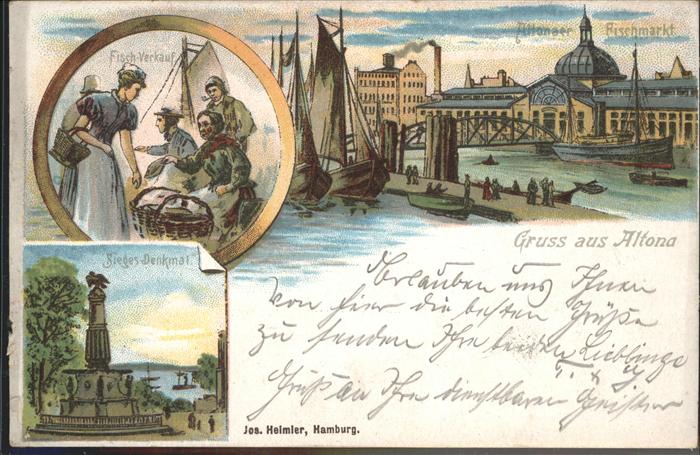 Fisch-Verkauf.
Altonaer Fischmarkt.
Gruss aus Altona
Sieges-Denkmal.
Erlauben uns Ihnen
von hier die besten Grüße
zu senden Ihre beiden Lieblinge
Gruß an Ihre dienstbaren Geister
Jos. Heimler, Hamburg.